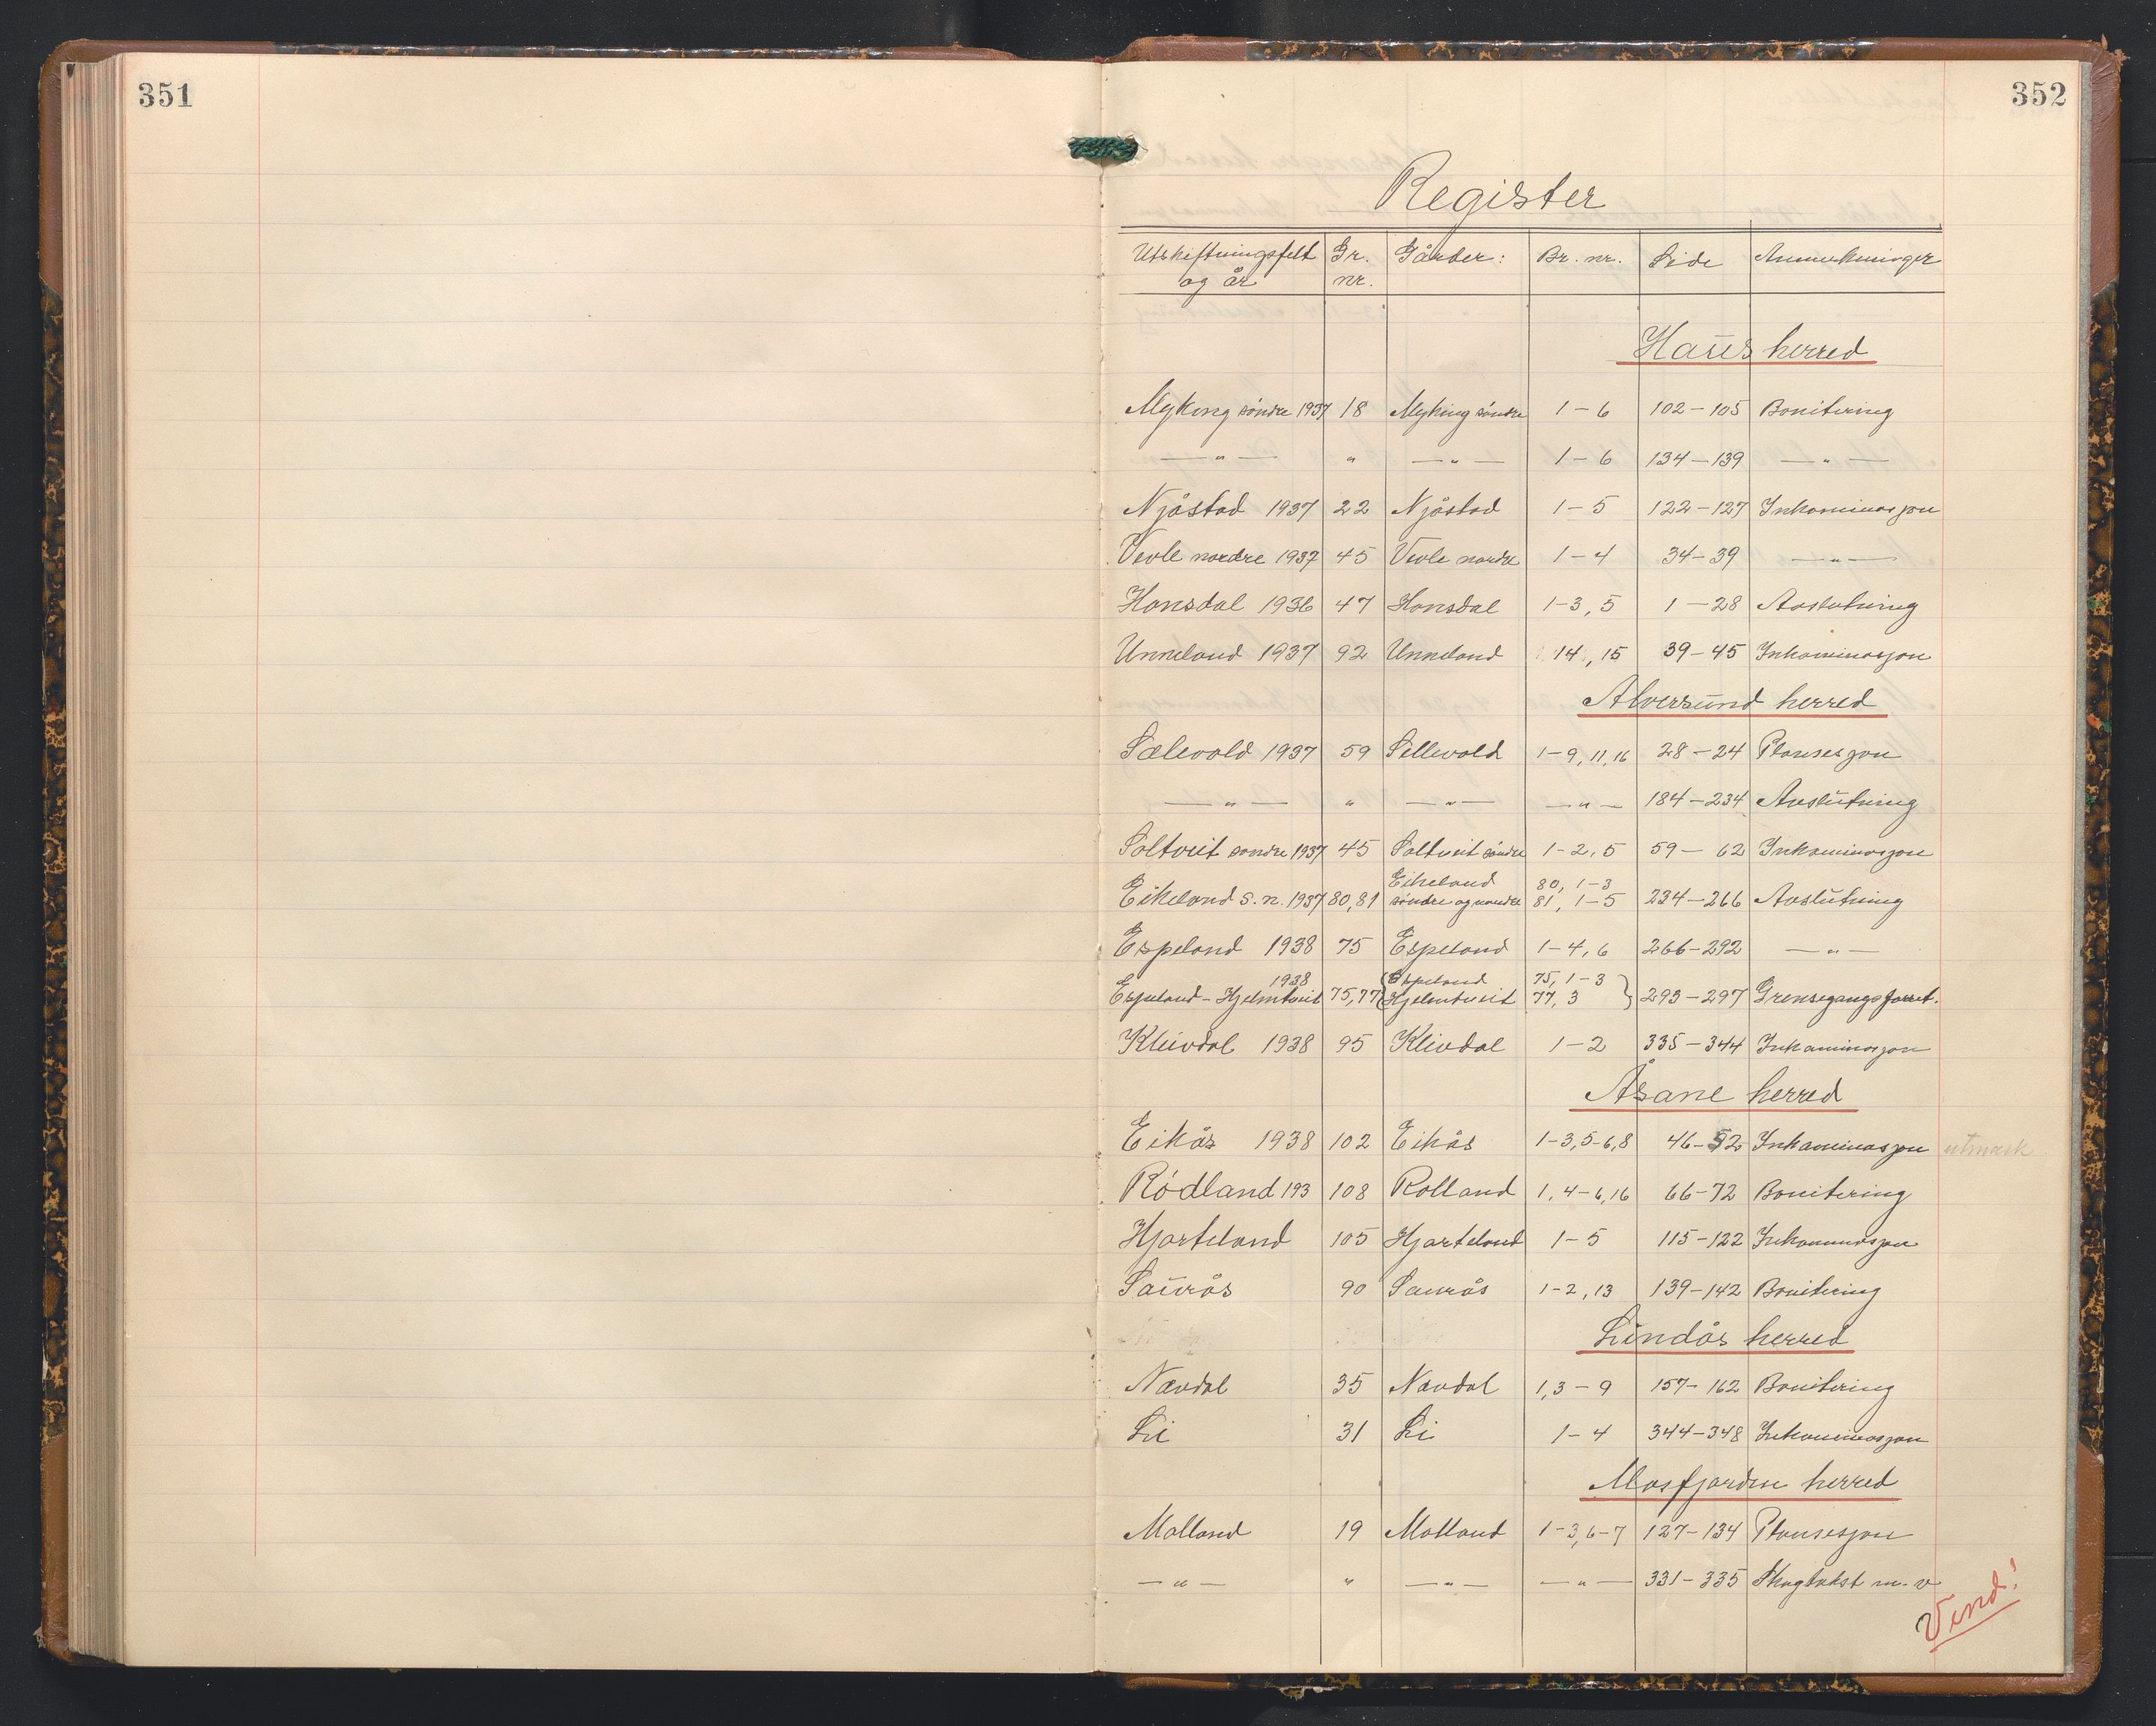 351
352
Register
Utskiftningsfelt og år Gr. nr. Gårder: Br. nr. Side Anmerkninger
Haus herred
Myking søndre 1937 18 Myking søndre 1-6 102-105 Bonitering
—„— „ —„— 1-6 134-139 —„—
Njåstad 1937 22 Njåstad 1-5 122-127 Inkaminasjon
Vevle nordre 1937 45 Vevle nordre 1-4 34-39 —„—
Hansdal 1936 47 Hansdal 1-3, 5 1-28 Avslutning
Unneland 1937 92 Unneland 14, 15 39-45 Inkaminasjon
Alversund herred
Sælevold 1937 59 Sellevold 1-9, 11, 16 28-24 Plansesjon
—„— „ —„— —„— 184-234 Avslutning
Soltveit søndre 1937 45 Soltveit søndre 1-2, 5 59-62 Inkaminasjon
Eikeland s. n. 1937 80, 81 Eikeland søndre og nordre 80, 1-3 81, 1-5 234-266 Avslutning
Espeland 1938 75 Espeland 1-4, 6 266-292 —„—
Espeland-Hjelmtveit 1938 75, 77 (Espeland Hjelmtveit 75, 1-3 77, 3 } 293-297 Grensegangsforret.
Kleivdal 1938 95 Kleivdal 1-2 335-344 Inkaminasjon
Åsane herred
Eikås 1938 102 Eikås 1-3, 5-6, 8 46-52 Inkaminasjon utmark
Rødland 193 108 Rolland 1, 4-6, 16 66-72 Bonitering
Hjorteland 105 Hjorteland 1-5 115-122 Inkaminasjon
Saurås 90 Saurås 1-2, 13 139-142 Bonitering
Lindås herred
Nævdal 35 Nævdal 1, 3-9 157-162 Bonitering
Li 31 Li 1-4 344-348 Inkaminasjon
Masfjorden herred
Matland 19 Matland 1-3, 6-7 127-134 Plansesjon
—„— „ —„— —„— 331-335 Skogtakst m. v
Vend!